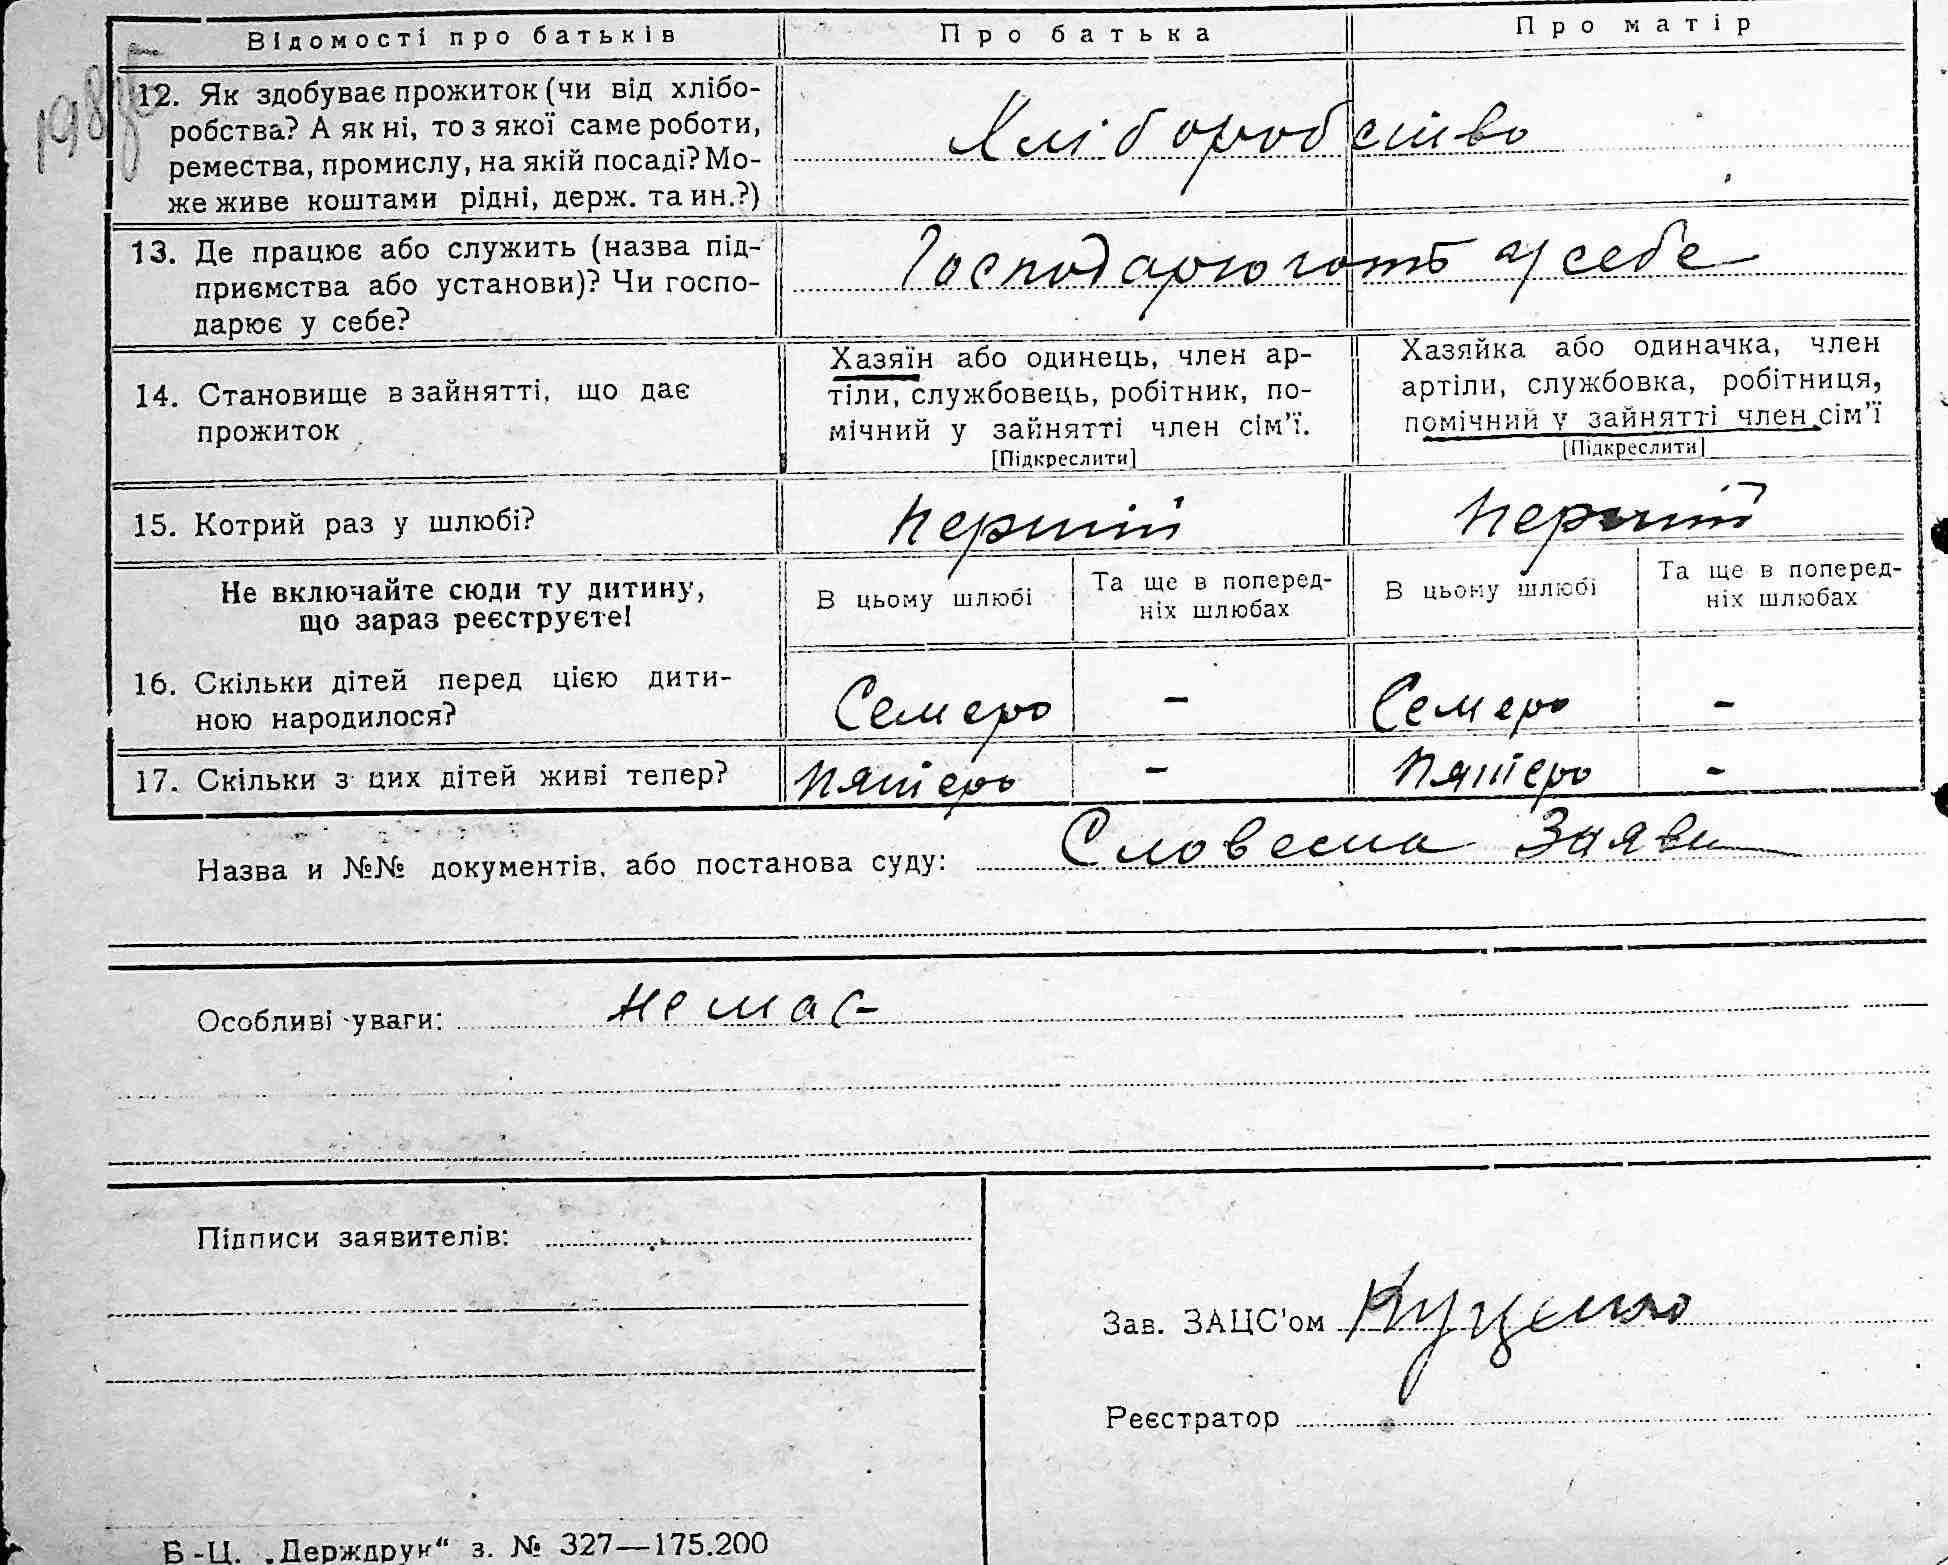 Відомості про батьків Про батька Про матір
12. Як здобуває прожиток (чи від хлібо-
робства? А як ні, то з якої саме роботи,
ремества, промислу, на якій посаді? Мо-
же живе коштами рідні, держ. та ин.?)
Хліборобство
13. Де працює або служить (назва під-
приємства або установи)? Чи госпо-
дарює у себе?
Господарюють у себе
14. Становище в зайнятті, що дає
прожиток
Хазяїн або одинець, член ар-
тіли, службовець, робітник, по-
мічний у зайнятті член сім'ї.
[Підкреслити]
Хазяйка або одиначка, член
артіли, службовка, робітниця,
помічний у зайнятті член сім'ї
[Підкреслити]
15. Котрий раз у шлюбі? перший перший
Не включайте сюди ту дитину,
що зараз реєструєте!
В цьому шлюбі
Та ще в поперед-
ніх шлюбах
В цьому шлюбі
Та ще в поперед-
ніх шлюбах
16. Скільки дітей перед цією дити-
ною народилося?
Семеро - Семеро -
17. Скільки з цих дітей живі тепер? пятеро - пятеро -
Назва и №№ документів, або постанова суду: Словесна Заява
Особливі уваги: немає
Підписи заявителів:
Зав. ЗАЦС'ом Куценко
Реєстратор
Б-Ц. „Держдрук“ з. № 327—175.200